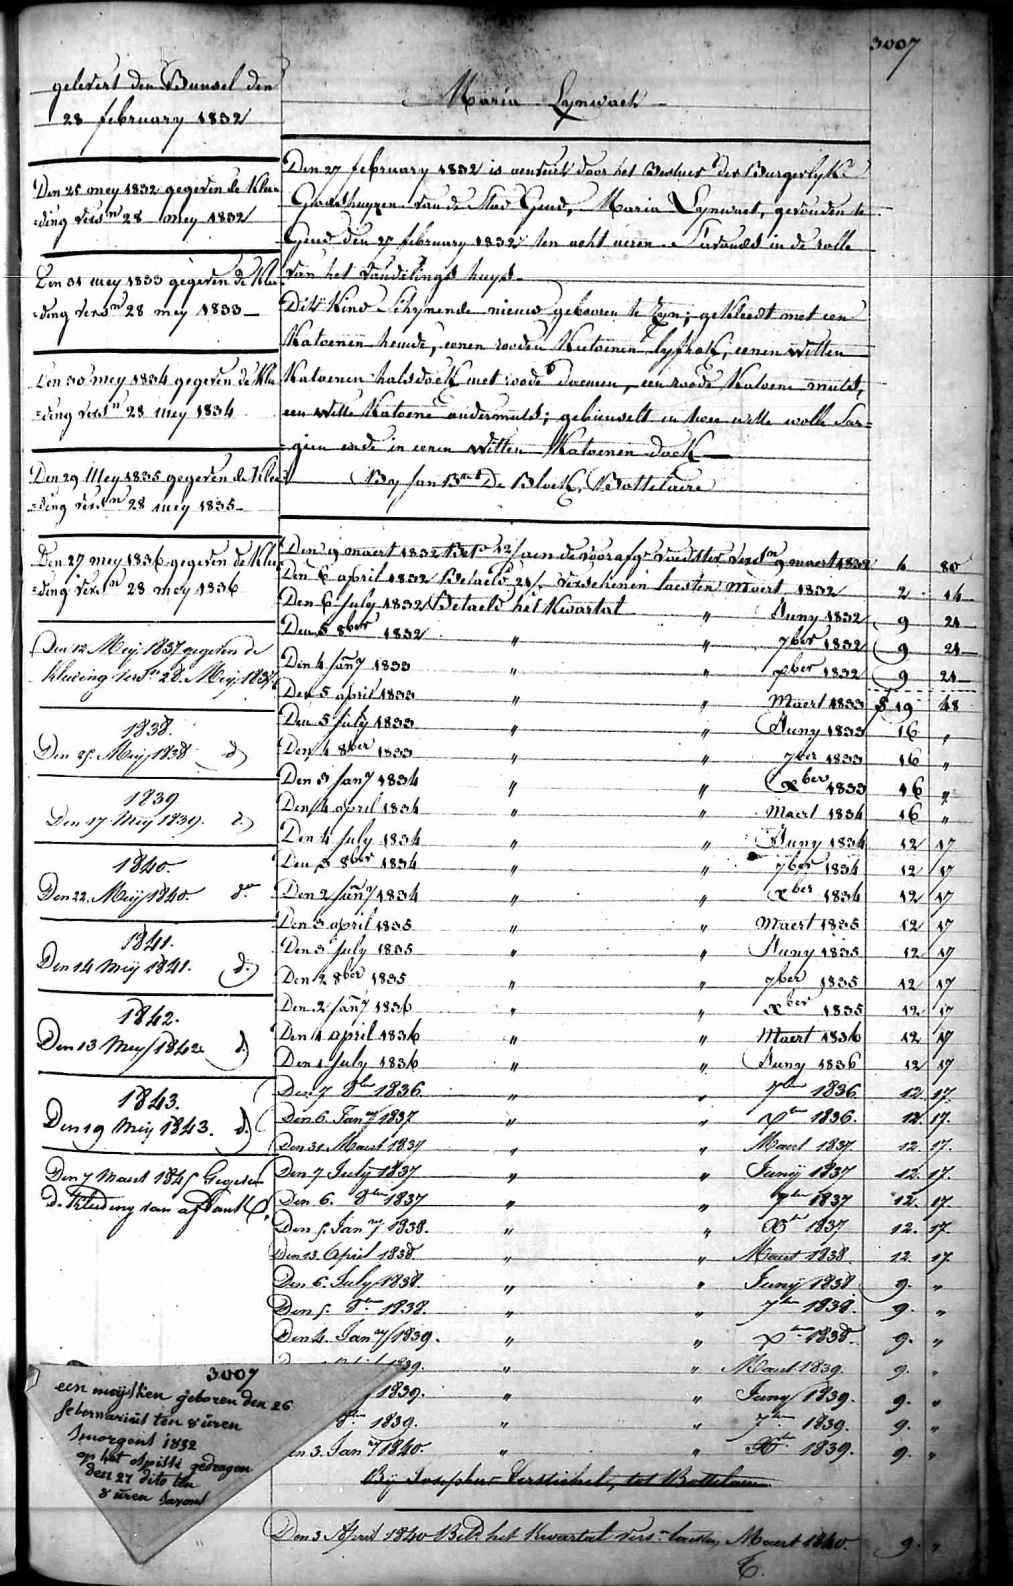 3007
gelevert den Bunsel den
28 february 1832
Maria Lynwaet
Den 25 mey 1832 gegeven de Klee-
=ding vers.n 28 mey 1832
Den 31 mey 1833 gegeven de Klee-
=ding vers.n 28 mey 1833
Den 30 mey 1834 gegeven de Klee-
=ding vers.n 28 mey 1834
Den 29 Mey 1835 gegeven de Klee-
=ding vers.n 28 mey 1835
Den 27 mey 1836 gegeven de Klee-
=ding vers.n 28 mey 1836
Den 12 Meij 1837 gegeven de
Kleeding vers.n 28 Meij 1837
1838.
Den 25. Meij 1838 d.
1839
Den 17 Meij 1839. d.
1840.
Den 22. Meij 1840. d.o
1841.
Den 14 Meij 1841. d.
1842.
Den 13 Mey 1842 d.
1843.
Den 19 Meij 1843. d.
Den 7 Maert 1845 Gegeven
de Kleeding van
Den 27 february 1832 is aenveert door het Bestuer der Burgerlyke
Godshuyzen van de Stad Gend, Maria Lynwaet, gevonden te
Gend den 27 february 1832 ten acht uren S'avonds in de rolle
van het vondelings huys
Dit Kind Schynende nieuw gebooren te zyn; gekleedt met een
Katoenen hemde, eenen rooden Katoenen lyfrok, eenen witten
Katoenen halsdoek met roode bloemen, een roode Katoene muts,
een witte Katoene ondermuts; gebusselt in twee witte wolle Sar=
=gien ende in eenen witten Katoenen doek
By Jan Bte De Block, Bottelaire
Den 9 maert 1832 Bet. 12/ aen de voorafg. voedster vers.n 9 maert 1832 6 80
Den 6 april 1832 Betaelt 21/. verschenen laesten Maert 1832 2 14
Den 6 July 1832 Betaelt het Kwartal " Juny 1832 9 24
Den 5 8ber 1832 " " 7ber 1832 9 24
Den 4 Jan.y 1833 " " xber 1832 9 24
Den 5 april 1833 " " Maert 1833 19 48
Den 5 July 1833 " " Juny 1833 16 "
Den 4 8ber 1833 " " 7ber 1833 16 "
Den 3 Jan.y 1834 " " xber 1833 16 "
Den 4 april 1834 " " Maert 1834 16 "
Den 4 July 1834 " " Juny 1834 12 17
Den 3 8ber 1834 " " 7ber 1834 12 17
Den 2 Jan.y 1834 " " xber 1834 12 17
Den 3 april 1835 " " Maert 1835 12 17
Den 3 July 1835 " " Juny 1835 12 17
Den 2 8ber 1835 " " 7ber 1835 12 17
Den 2 Jan.y 1836 " " xber 1835 12 17
Den 1 april 1836 " " Maert 1836 12 17
Den 1 July 1836 " " Juny 1836 12 17
Den 7 8ber 1836 " " 7ber 1836 12. 17.
Den 6. Jan.y 1837 " " xber 1836. 12. 17.
Den 31. Maert 1837 " " Maert 1837. 12. 17.
Den 7 July 1837 " " Junij 1837 12. 17.
Den 6. 8ber 1837 " " 7ber 1837 12. 17.
Den 5. Jan.y 1838. " " Xber 1837 12. 17.
Den 13. April 1838 " " Maert 1838. 12 17.
Den 6. July 1838 " " Junij 1838 9. "
Den 5. 8ber 1838. " " 7ber 1838. 9. "
Den 4. Jan.y 1839. " " xber 1838. 9. "
1839. " " Maert 1839. 9. "
1839. " " Juny 1839. 9. "
1839. " " 7ber 1839. 9. "
en 3. Jan.y 1840. " " Xber 1839. 9. "
Bij Josephus Verstichel, tot Bottelaere
Den 3 April 1840 Bet. het Kwartal vers. laesten Maert 1840. 9. "
3007
een meijsken geboren den 26
febernariuis ten 8 uren
Smorgens 1832
op het ospitli gedragen
den 27 dito ten
8 uren savons